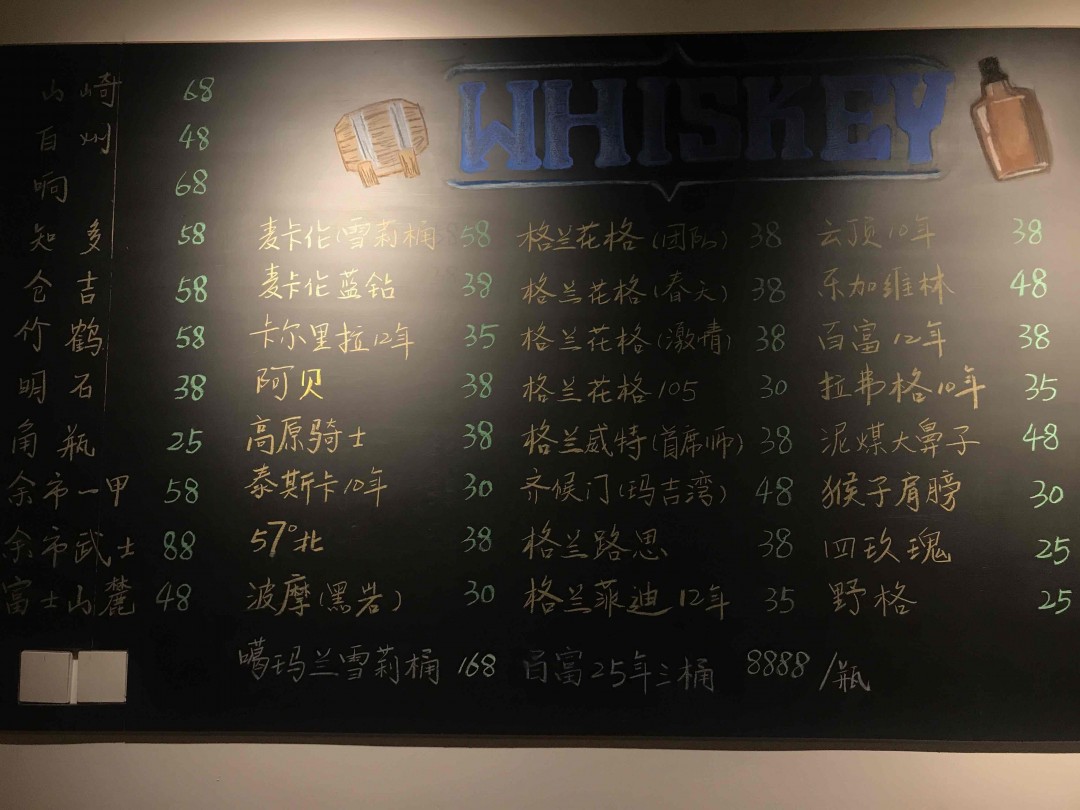 WHISKEY
山崎 68
白州 48
响 68
知多 58
仓吉 58
竹鹤 58
明石 38
角瓶 25
余市一甲 58
余市武士 88
富士山麓 48
麦卡伦(雪莉桶 58
麦卡伦蓝钻 38
卡尔里拉12年 35
阿贝 38
高原骑士 38
泰斯卡10年 30
57°北 38
波摩(黑岩) 30
噶玛兰雪莉桶 168
格兰花格(团队) 38
格兰花格(春天) 38
格兰花格(激情) 38
格兰花格105 30
格兰威特(首席师) 38
齐侯门(玛吉湾) 48
格兰路思 38
格兰菲迪12年 35
百富25年三桶 8888/瓶
云顶10年 38
乐加维林 48
百富12年 38
拉弗格10年 35
泥煤大鼻子 48
猴子肩膀 30
四玫瑰 25
野格 25